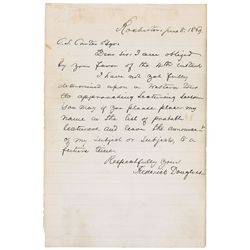 Rochester June 8. 1869.
Esqr.
Dear Sir: I am obliged
by your favor of the 4th instant.
I have not yet fully
determined upon a Western tour
the approaching Lecturing Season
You may if you please place my
name in the list of probable
lecturers and leave the announcement
of my subject or subjects, to a
future time.
Respectfully Yours
Frederick Douglass